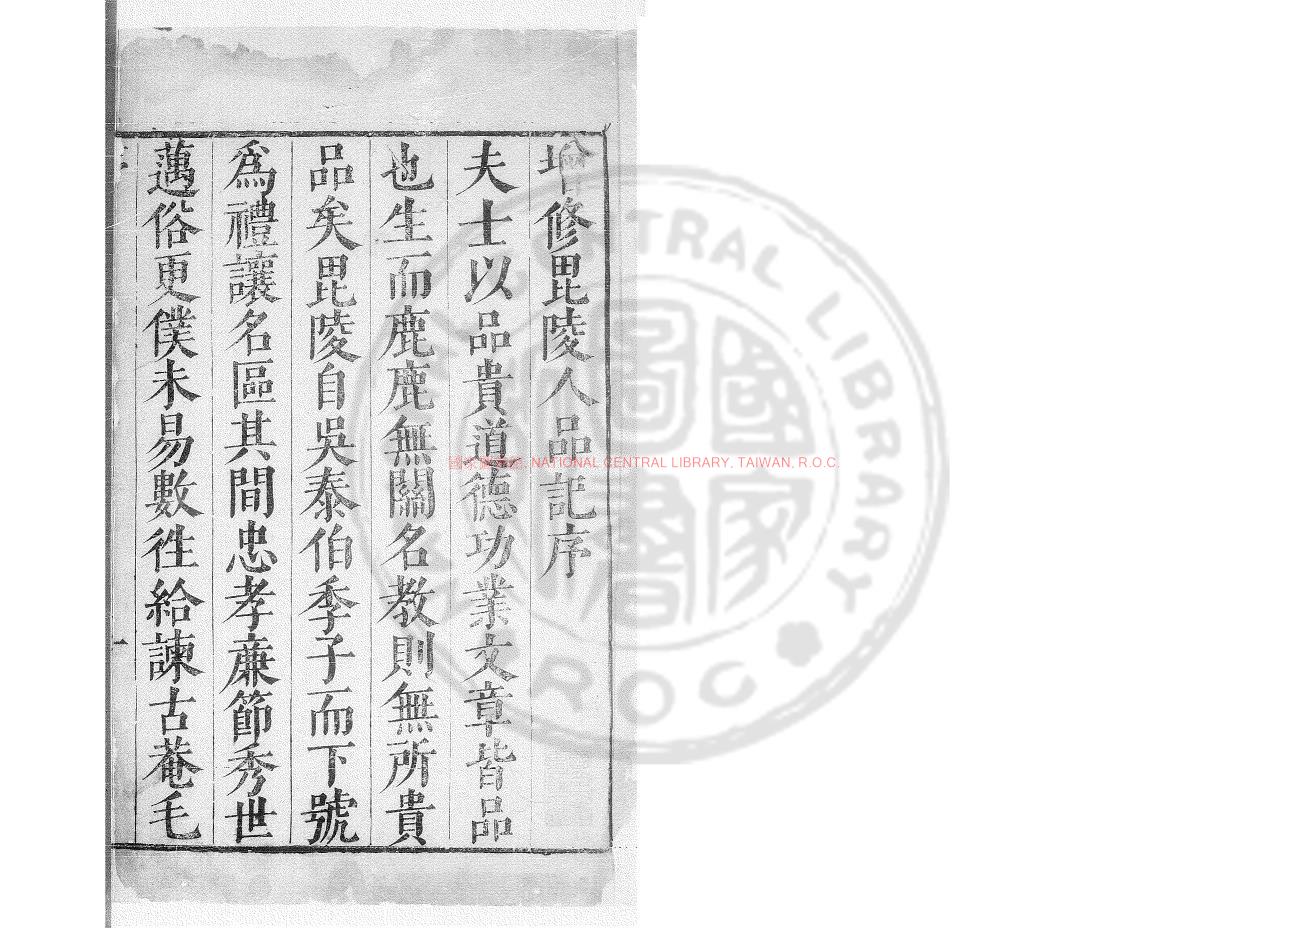 增修毘陵人品記序
夫士以品貴道德功業文章皆品
也生而鹿鹿無關名教則無所貴
品矣毘陵自吳泰伯季子而下號
為禮讓名區其間忠孝亷節秀世
邁俗更僕未易數徃給諫古菴毛
一
國家圖書館, NATIONAL CENTRAL LIBRARY, TAIWAN, R.O.C.